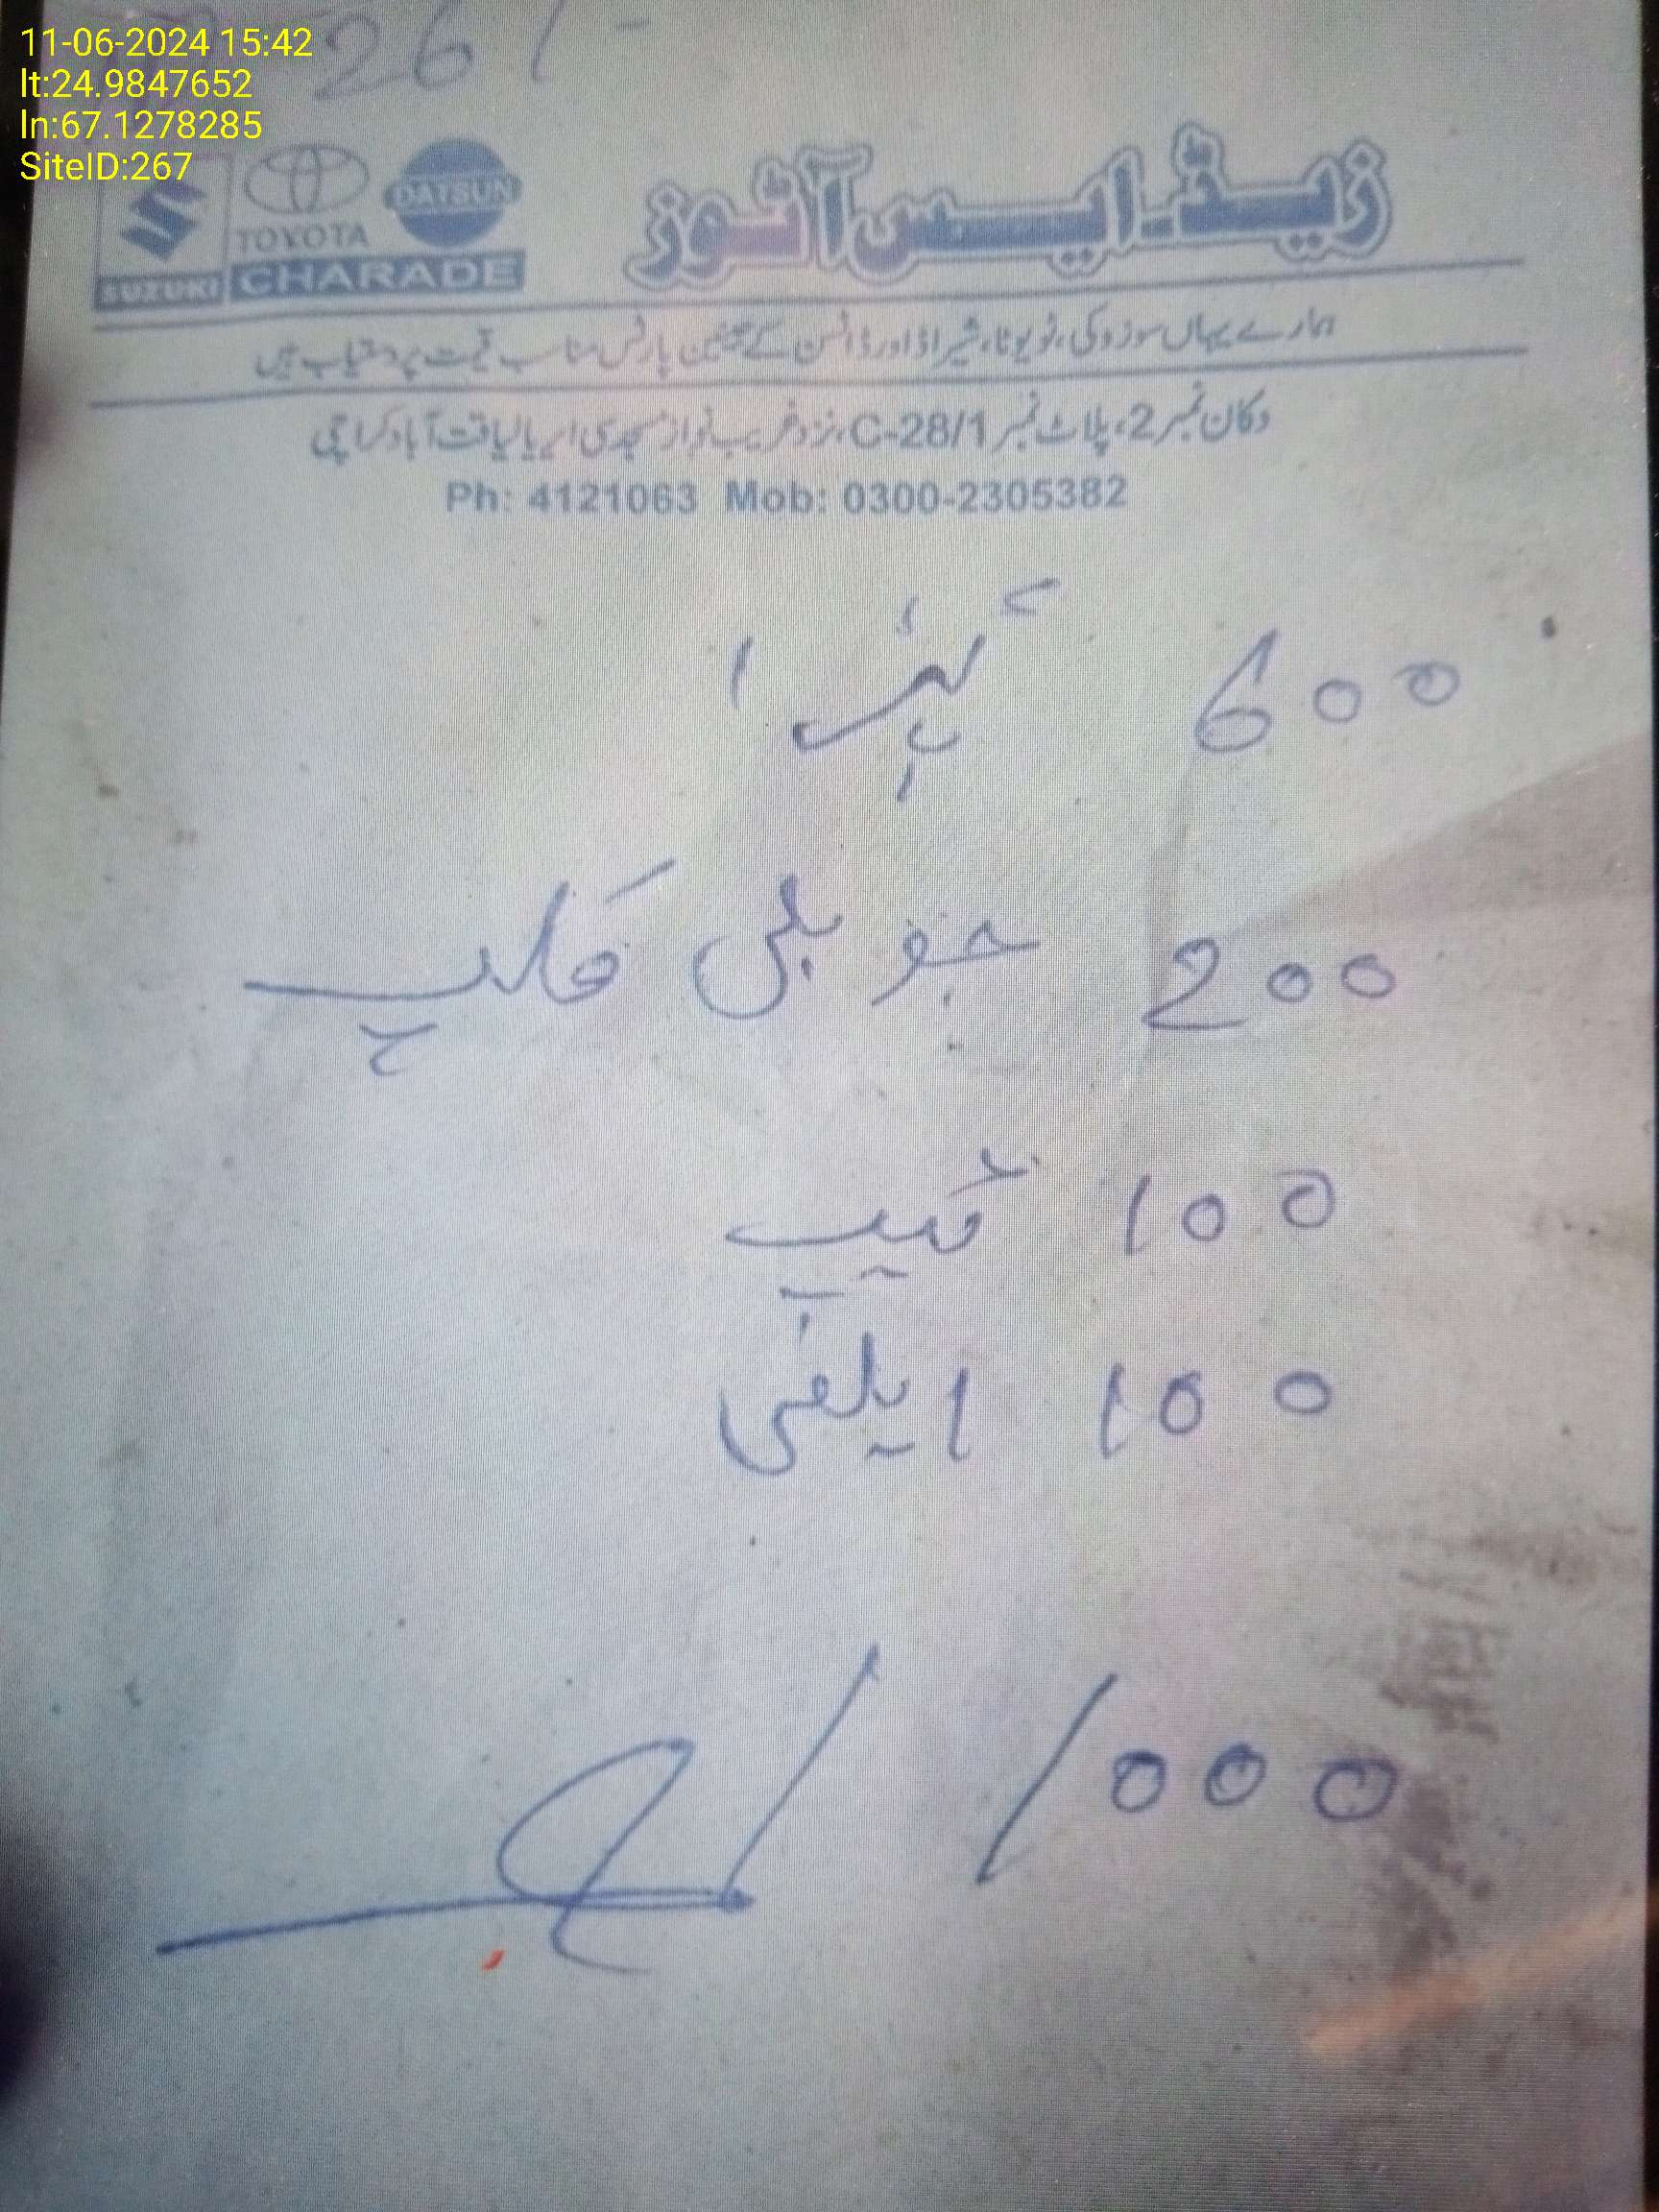 11-06-2024 15:42
lt:24.9847652
ln:67.1278285
SiteID:267
261-
SUZUKI
TOYOTA
DATSUN
CHARADE
زیڈ۔ایس آٹوز
ہمارے یہاں سوزوکی، ٹویوٹا، شیراڈ اور ڈاٹسن کے جینئن پارٹس مناسب قیمت پر دستیاب ہیں
دکان نمبر 2، پلاٹ نمبر C-28/1، نزد غریب نواز مسجد سی ایریا لیاقت آباد کراچی
Ph: 4121063 Mob: 0300-2305382
600
200 جوبلی کلپ
100 ٹیپ
100 ایلفی
1000